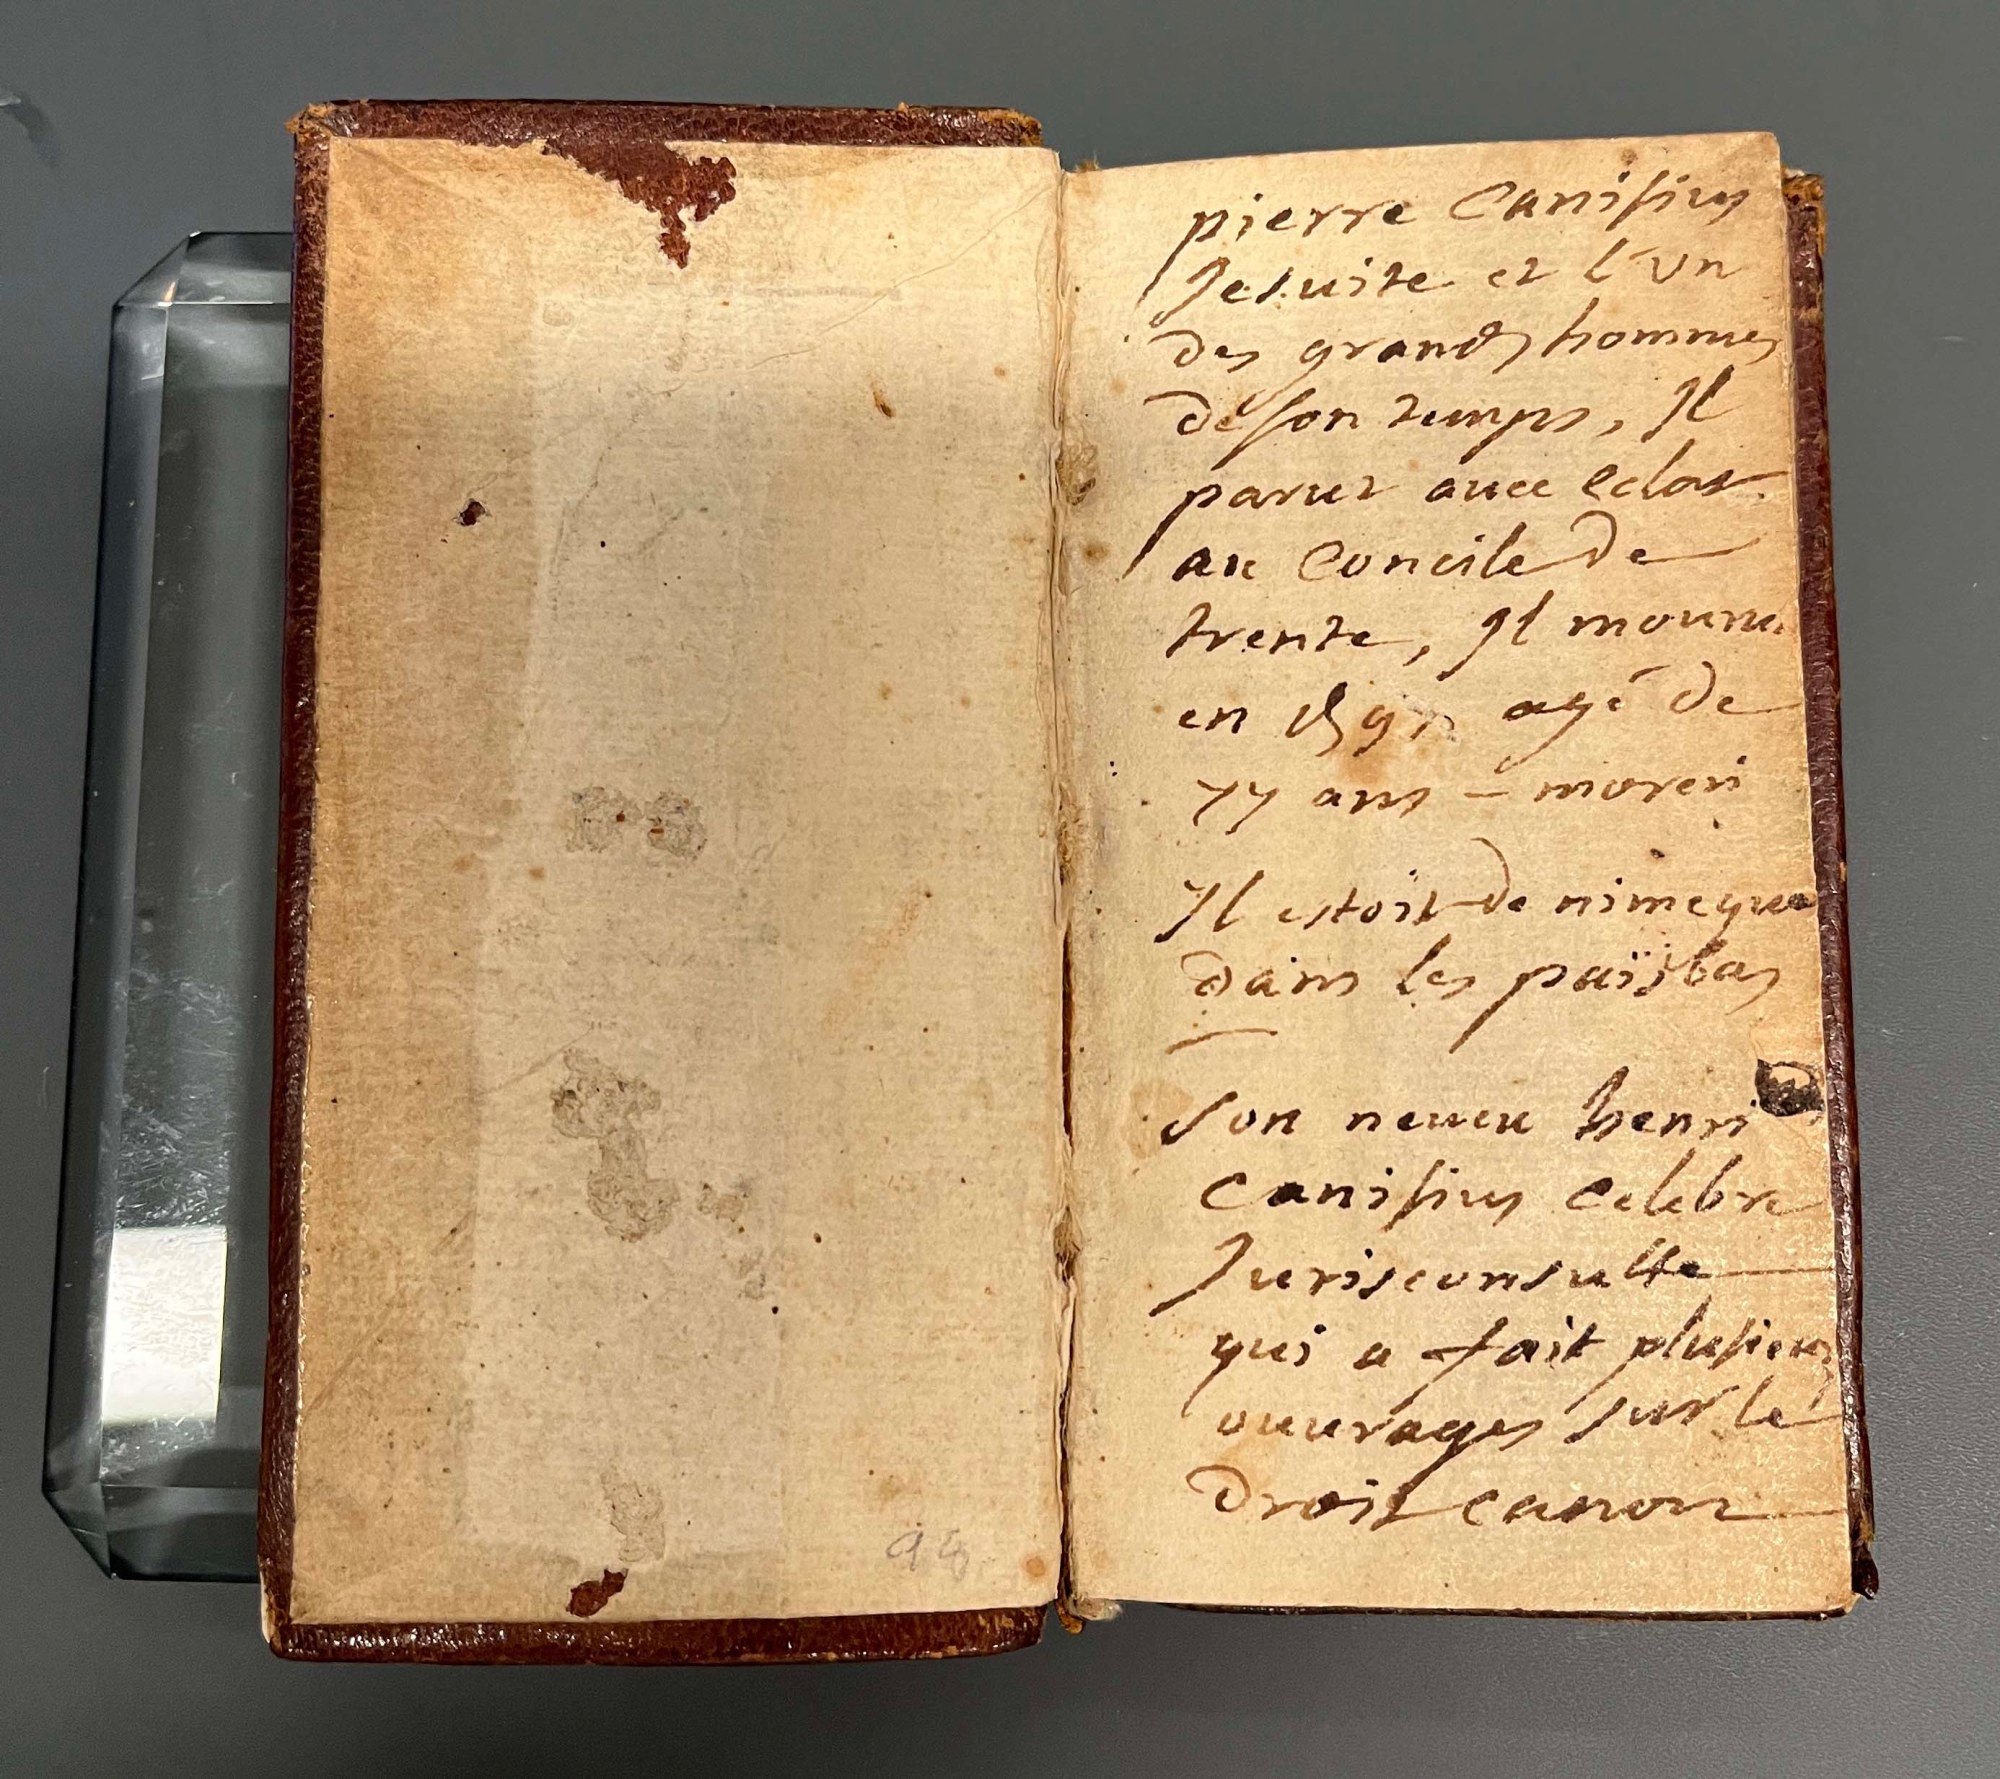 pierre Canisius
Jesuite et l'un
des grands hommes
de son temps, Il
parut avec eclat
au Concile de
trente, Il mouru
en agé de
77 ans - moreri
Il estoit de nimegue
dans les païsbas
son neveu henri
Canisius celebre
Jurisconsulte
qui a fait plusieurs
ouvrages sur le
droit canon
98